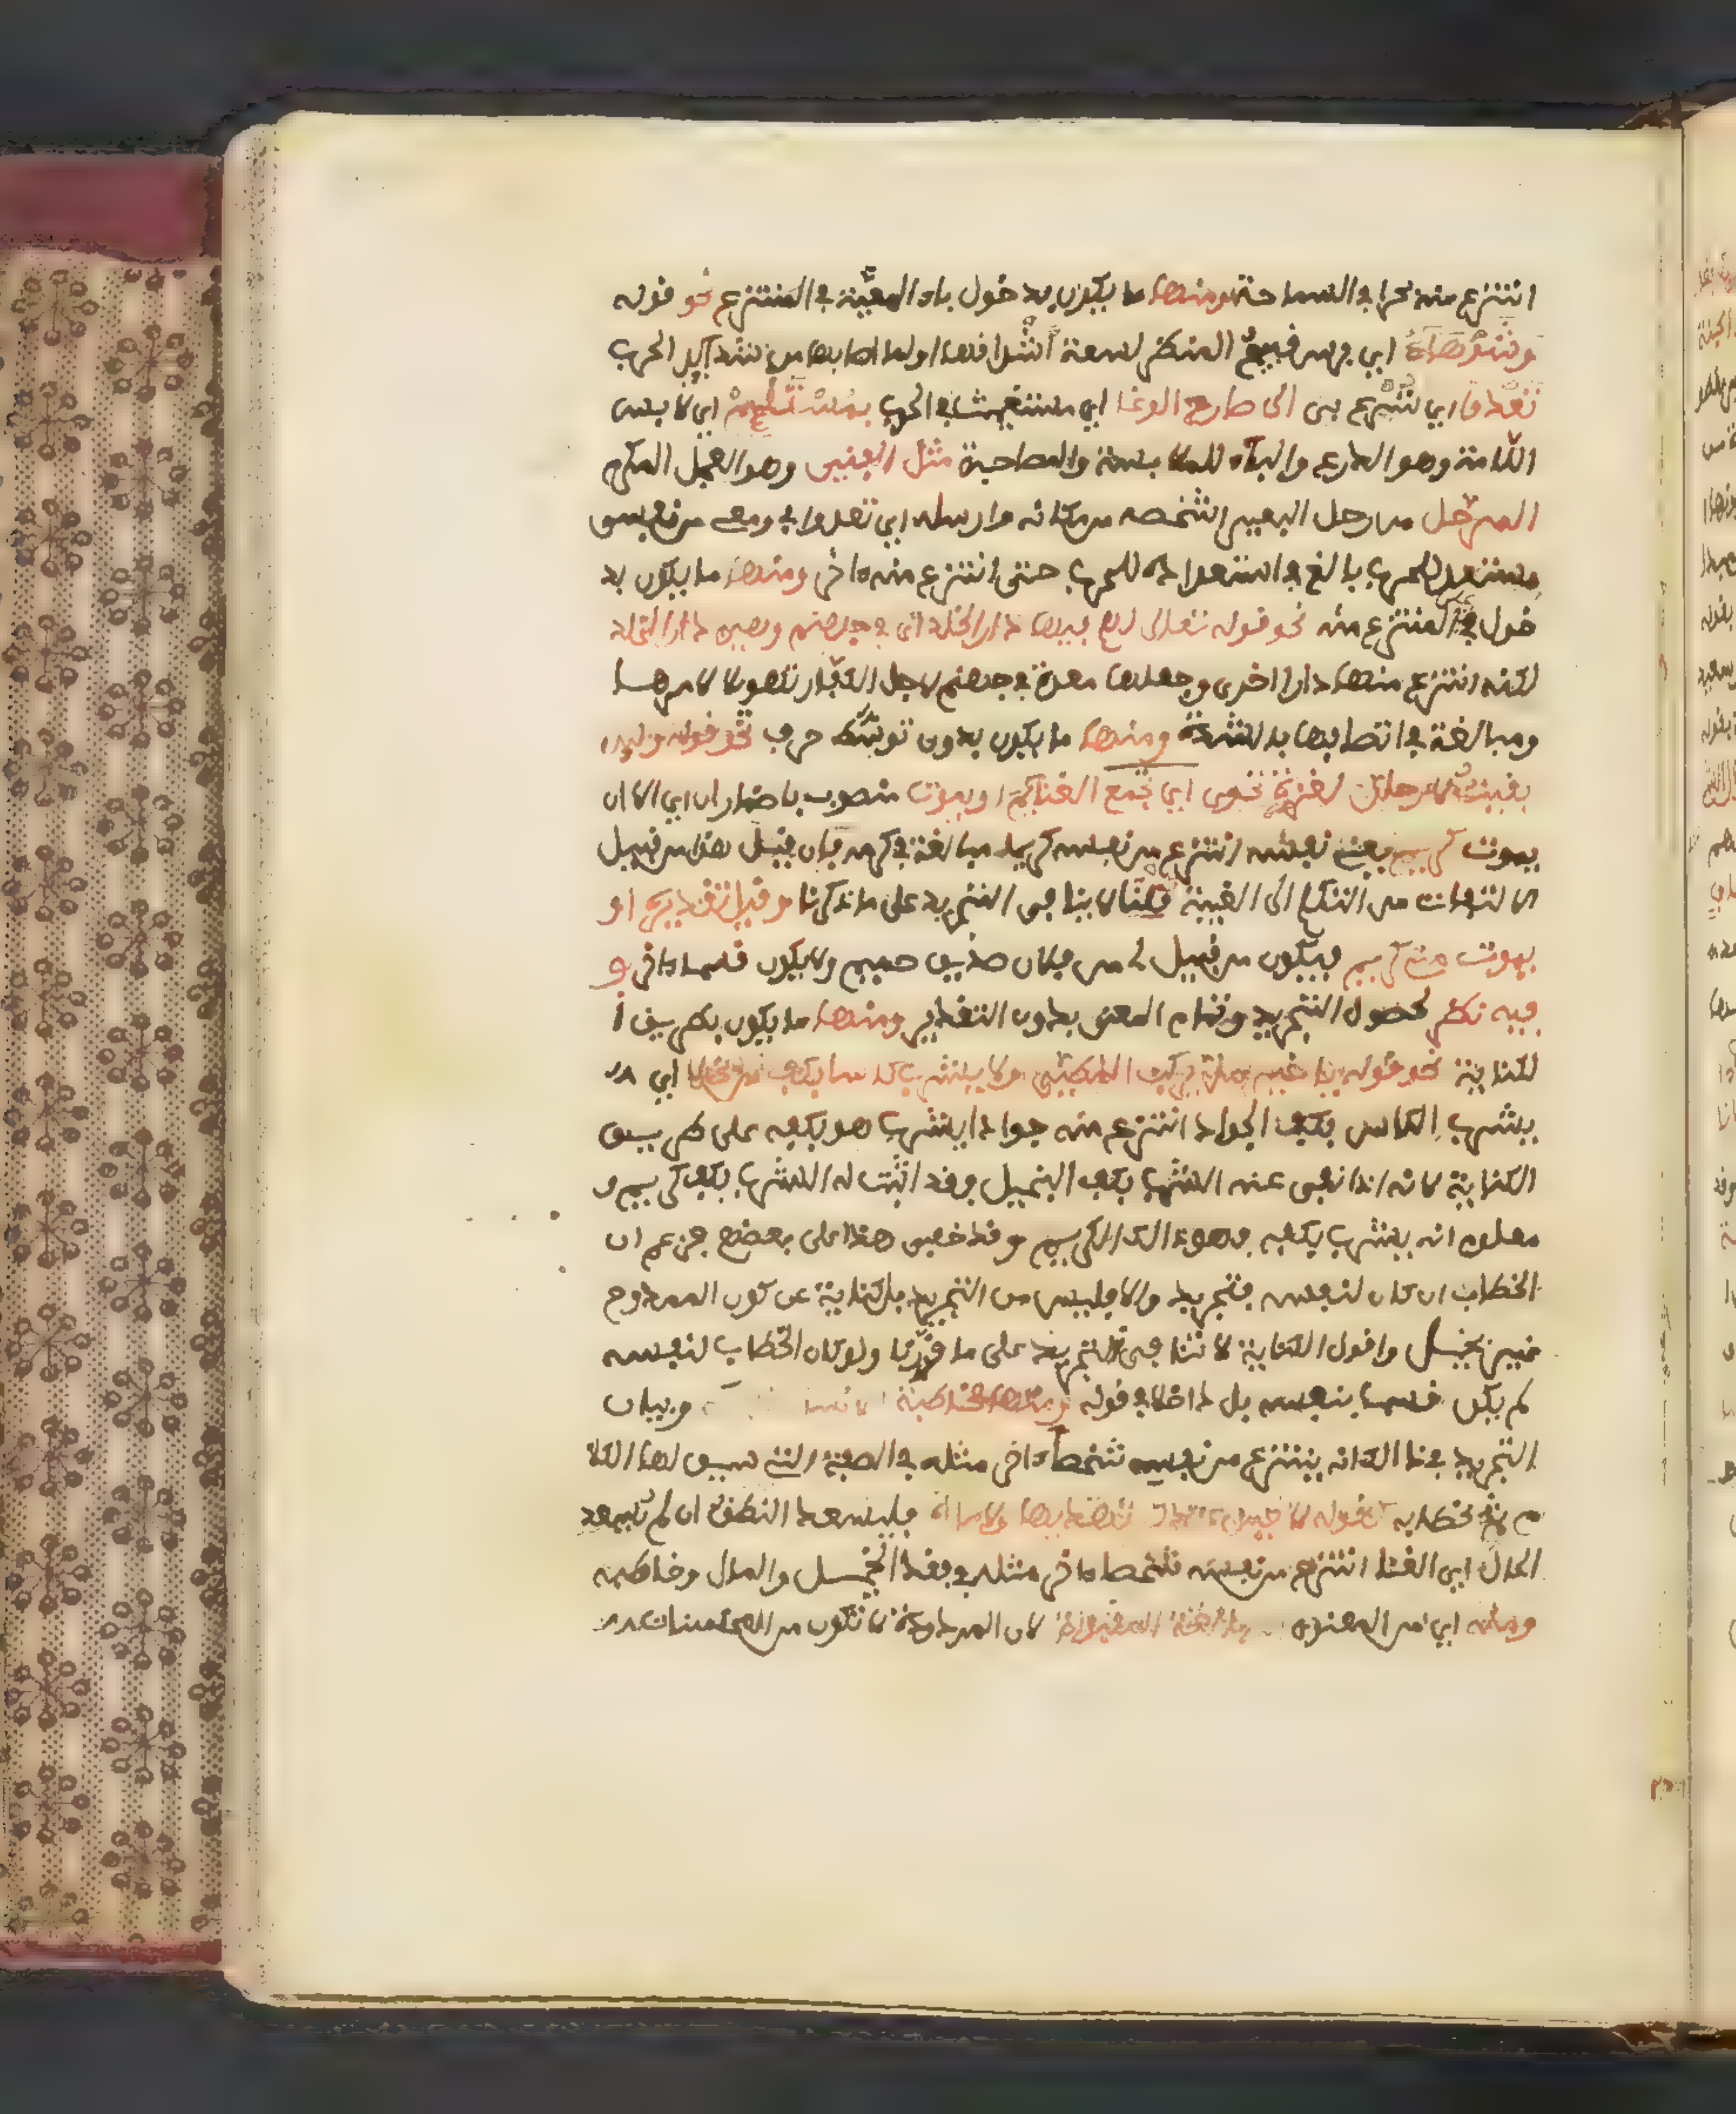 انتزع منه بحرا في السماحة ومنها ما يكون بدخول باء المعية في المنتزع نحو قوله
وشوهاء اي فرس قبيح المنظر لسعة اشداقها او لما اصابها من شدايد الحرب
تعدو اي تسرع بي الى صارخ الوغا اي مستغيث في الحرب بمستلئم اي لابس
اللامة وهو الدرع والباء للملابسة والمصاحبة مثل الفنيق وهو الفحل المكرم
المرحل من رحل البعير اشخصه من مكانه وارسله اي تعدو بي ومعي من نفسي
مستعد للحرب بالغ في استعداده للحرب حتى انتزع منه ءاخر ومنها ما يكون بد
خول في في المنتزع منه نحو قوله تعالى لهم فيها دار الخلد اي في جهنم وهي دار الخلد
لكنه انتزع منها دارا اخرى وجعلها معدة في جهنم لاجل الكفار تهويلا لامرها
ومبالغة في اتصافها بالشدة ومنها ما يكون بدون توسط حرف نحو قوله ولين
بقيت لارحلن لغزوة تحوي اي تجمع الغنائم او يموت منصوب باضمار ان اي الا ان
يموت كريم يعني نفسه انتزع من نفسه كريما مبالغة في كرمه فان قيل هذا من قبيل
الالتفات من التكلم الى الغيبة قلنا لا ينافي التجريد على ما ذكرنا وقيل تقديره او
يموت مني كريم فيكون من قبيل لي من فلان صديق حميم ولا يكون قسما ءاخر و
فيه نظر لحصول التجريد وتمام المعنى بدون التقدير ومنها ما يكون بطريق ا
لكناية نحو قوله يا خير من يركب المطي ولا يشرب كاسا بكف من بخلا اي لا
يشرب الكاس بكف الجواد انتزع منه جوادا يشرب هو بكفه على طريق
الكناية لانه اذا نفى عنه الشرب بكف البخيل وقد اثبت له الشرب بكف كريم و
معلوم انه يشرب بكفه فهو ذالك الكريم وقد خفي هذا على بعضهم فزعم ان
الخطاب ان كان لنفسه فتجريد والا فليس من التجريد بل كناية عن كون الممدوح
غير بخيل واقول الكناية لا تنافي التجريد على ما قررنا ولو كان الخطاب لنفسه
لم يكن قسما بنفسه بل داخلا في قوله ومنها مخاطبة الانسان وبيان
التجريد في ذالك انه ينتزع من نفسه شخصا ءاخر مثله في الصفة التي سيق لها الكلا
م ثم يخاطبه كقوله لا خيل عندك تهديها ولا مال فليسعد النطق ان لم تسعد
الحال اي الغنا انتزع من نفسه شخصا ءاخر مثله في فقد الخيل والمال وخاطبه
ومنه اي من المعنوي المبالغة المقبولة لان المردودة لا تكون من المحسنات لا